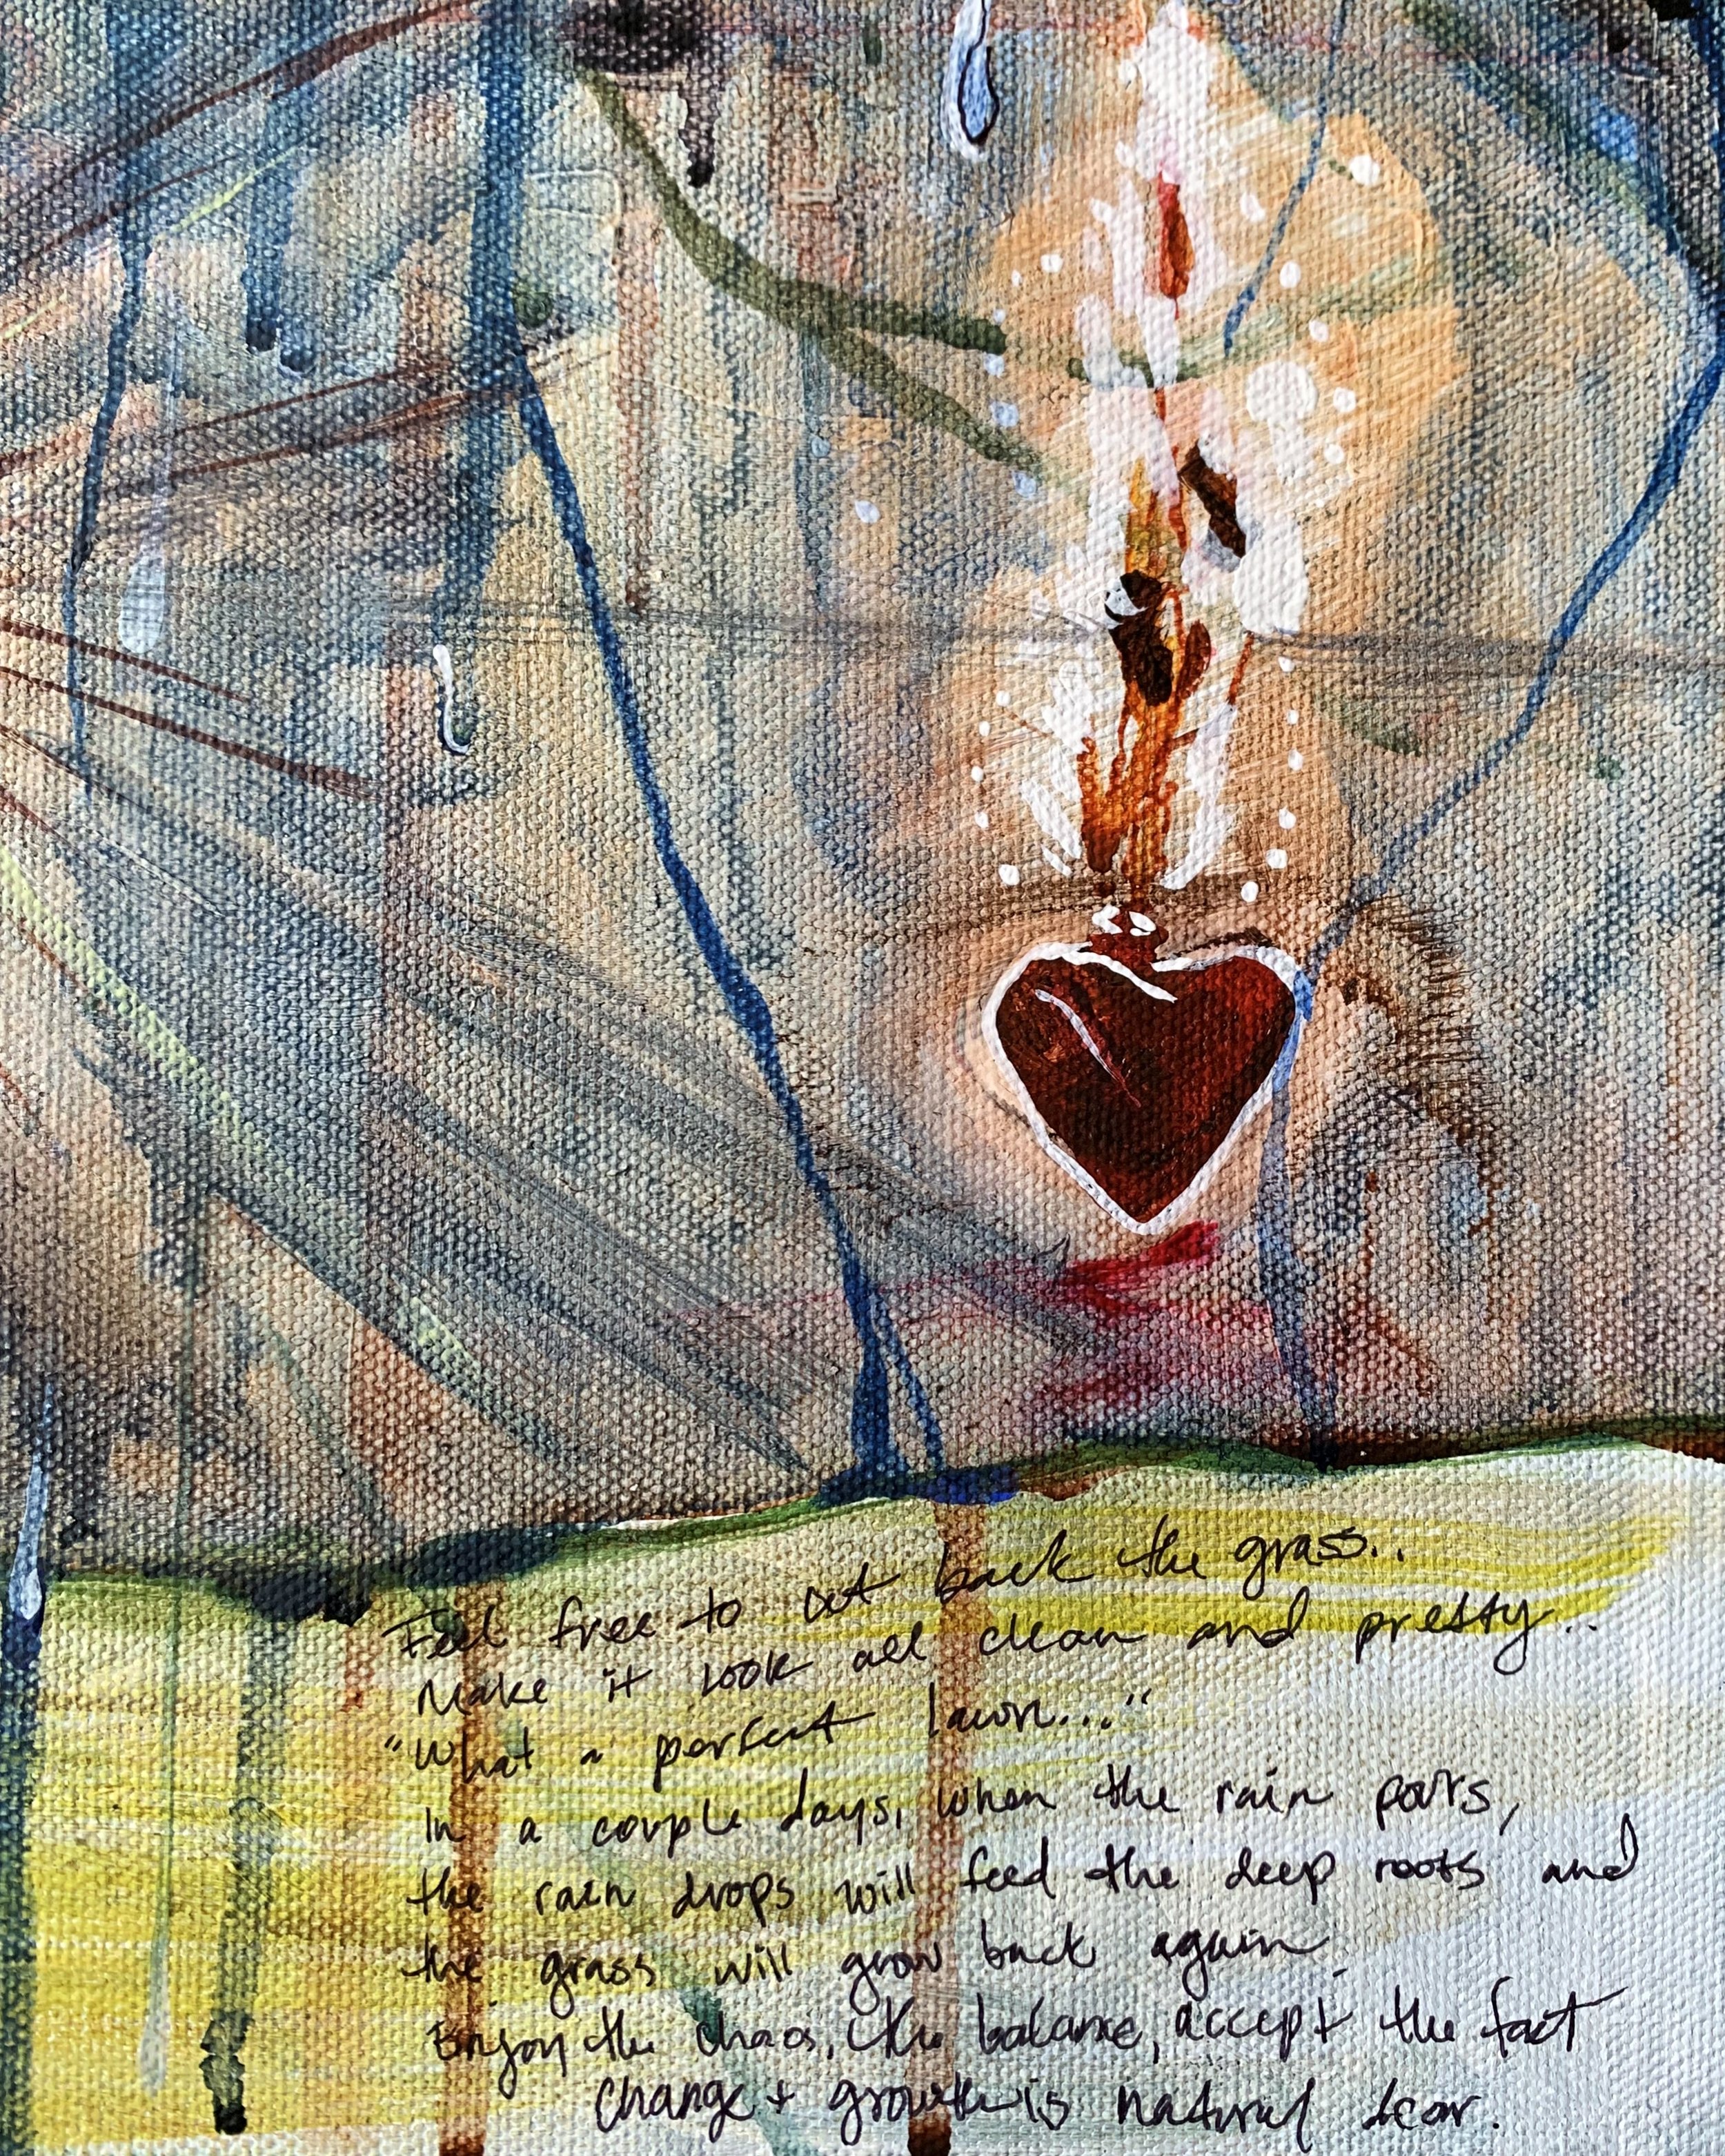 Feel free to cut back the grass..
Make it look all clean and pretty..
"What a perfect lawn..."
In a couple days, when the rain pours,
the rain drops will feed the deep roots and
the grass will grow back again.
Enjoy the chaos, the balance, accept the fact
change + growth is natural dear.